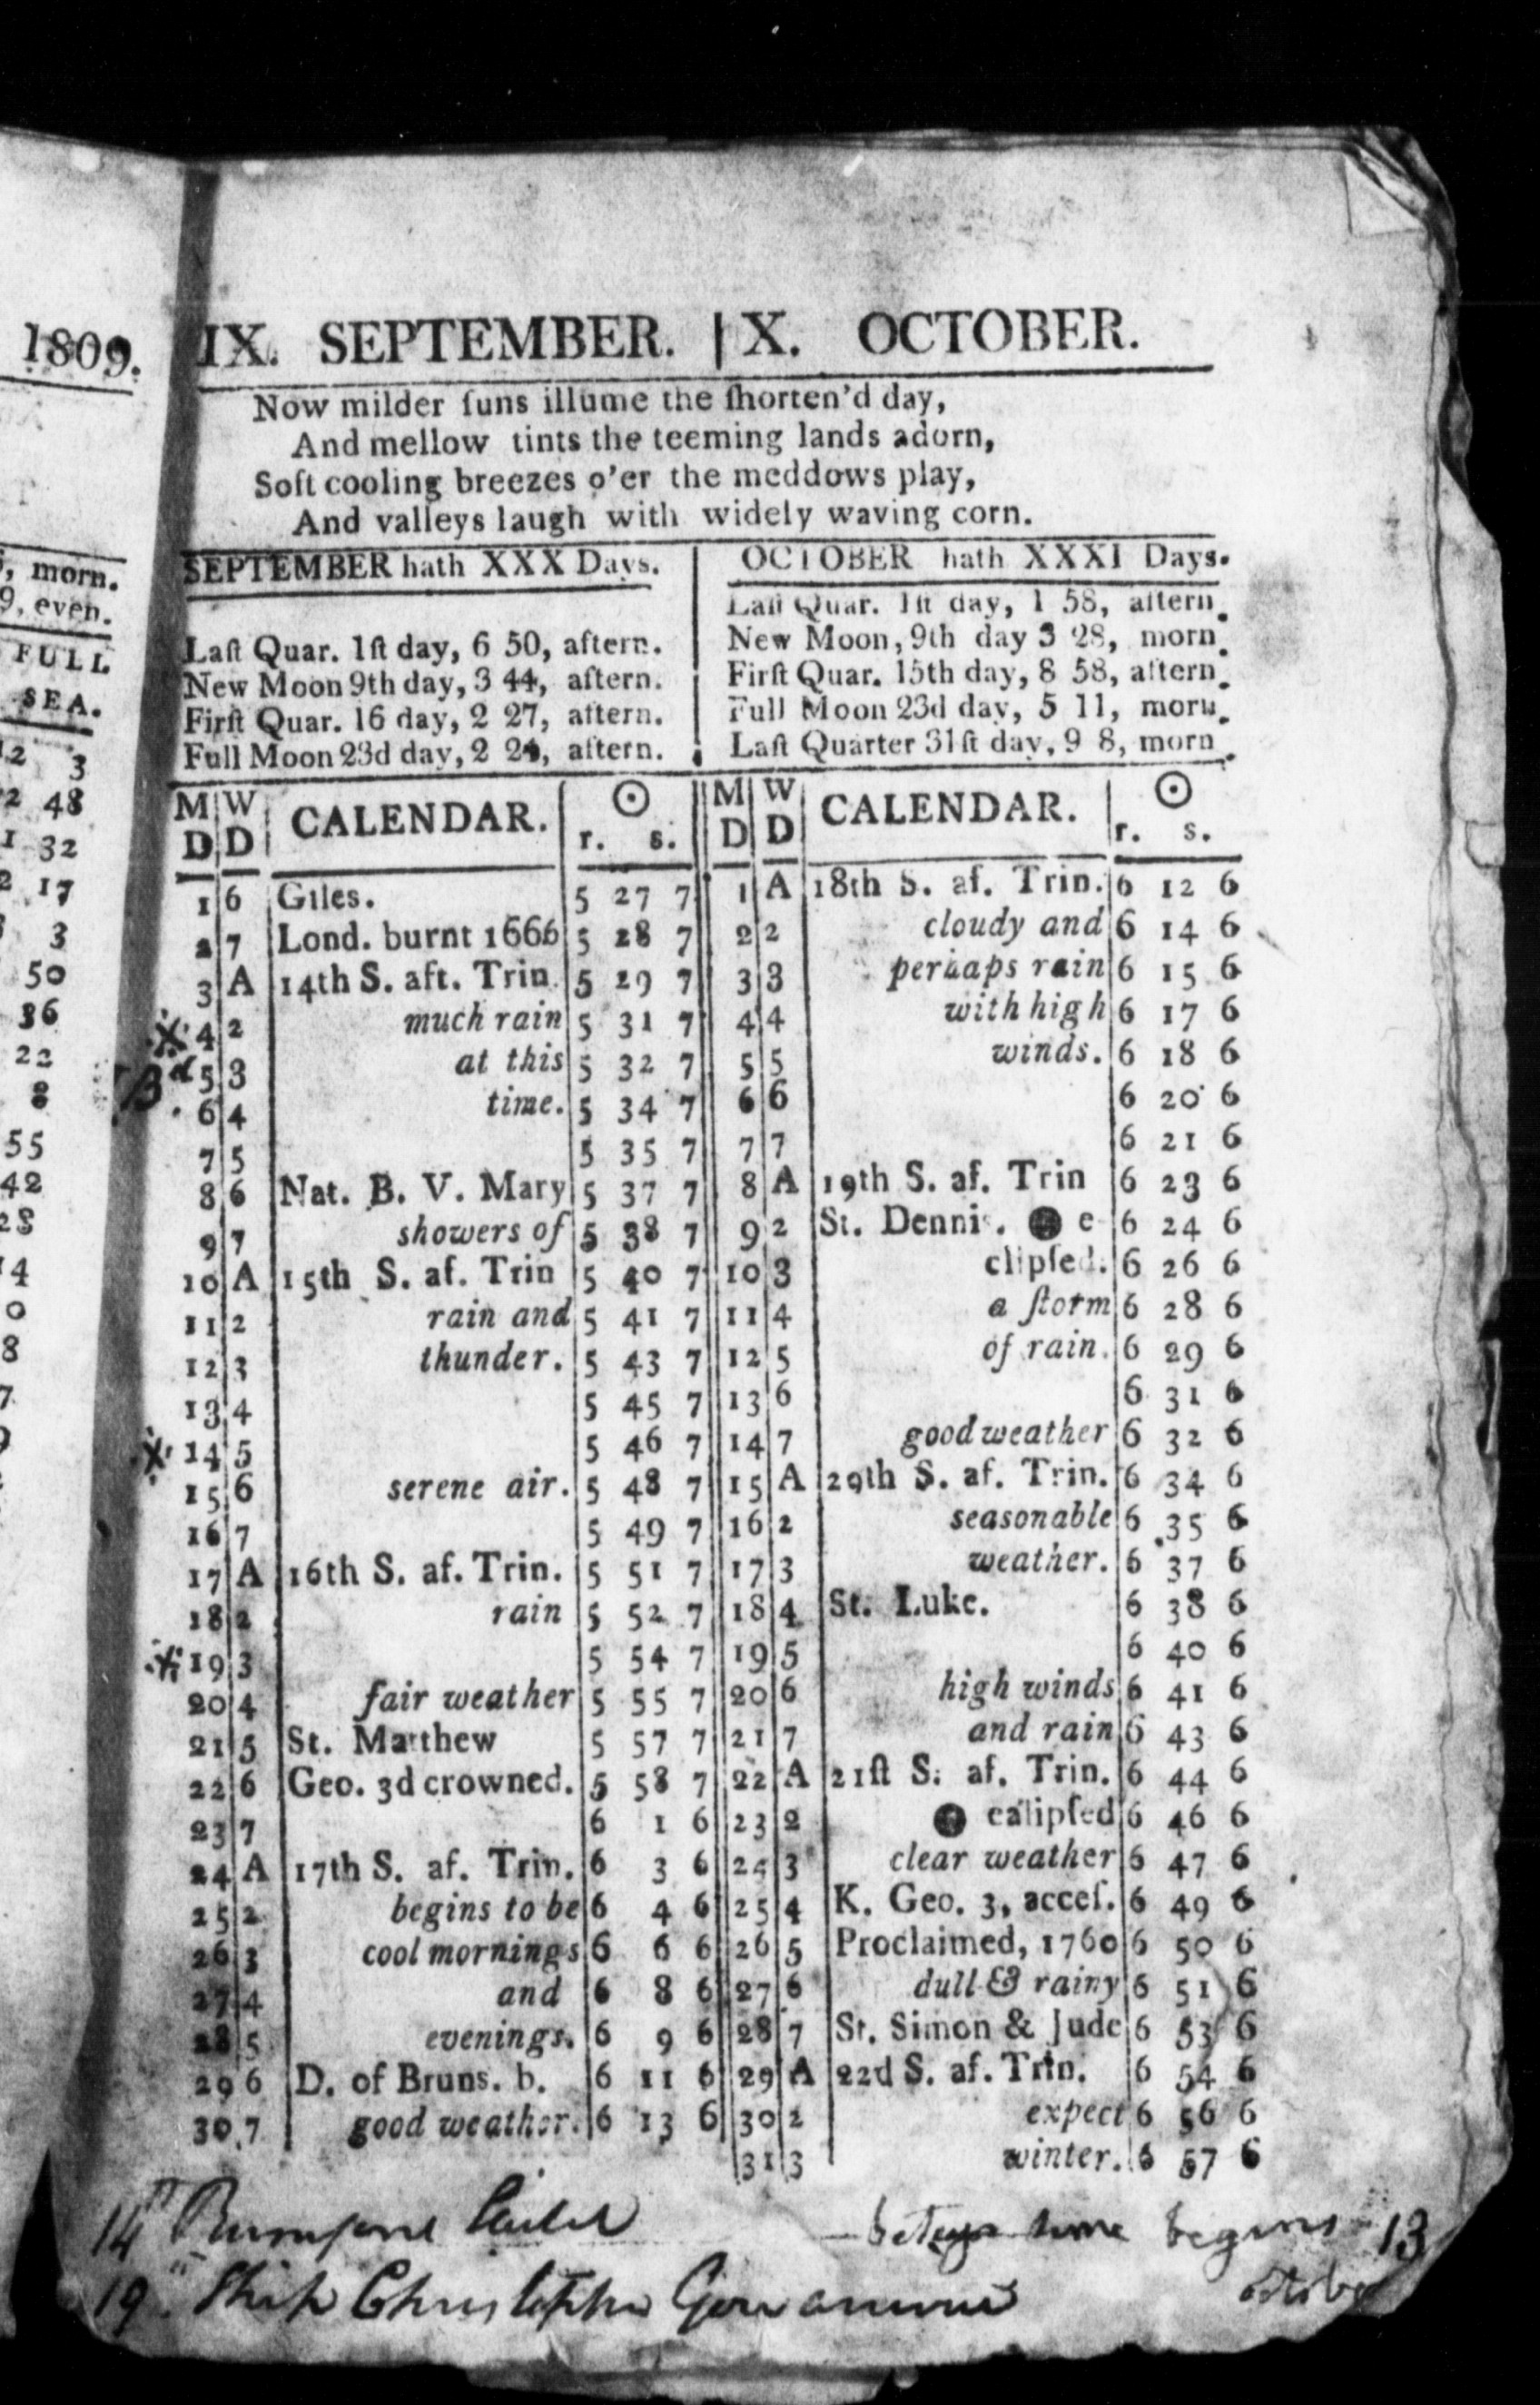 1809.
, morn.
9, even.
FULL
SEA.
3
48
32
17
3
50
36
22
8
55
42
28
IX. SEPTEMBER. | X. OCTOBER.
Now milder ſuns illume the ſhorten'd day,
And mellow tints the teeming lands adorn,
Soft cooling breezes o'er the meddows play,
And valleys laugh with widely waving corn.
SEPTEMBER hath XXX Days.
Laſt Quar. 1ſt day, 6 50, aftern.
New Moon 9th day, 3 44, aftern.
Firſt Quar. 16 day, 2 27, aftern.
Full Moon 23d day, 2 24, aftern.
OCTOBER hath XXXI Days.
Laſt Quar. 1ſt day, 1 58, aftern.
New Moon, 9th day 3 28, morn.
Firſt Quar. 15th day, 8 58, aftern.
Full Moon 23d day, 5 11, morn.
Laſt Quarter 31ſt day, 9 8, morn.
M D W D CALENDAR. ☉ r. s.
1 6 Giles. 5 27 7
2 7 Lond. burnt 1666 5 28 7
3 A 14th S. aft. Trin. 5 29 7
4 2 much rain 5 31 7
5 3 at this 5 32 7
6 4 time. 5 34 7
7 5 5 35 7
8 6 Nat. B. V. Mary 5 37 7
9 7 showers of 5 38 7
10 A 15th S. af. Trin 5 40 7
11 2 rain and 5 41 7
12 3 thunder. 5 43 7
13 4 5 45 7
14 5 5 46 7
15 6 serene air. 5 48 7
16 7 5 49 7
17 A 16th S. af. Trin. 5 51 7
18 2 rain 5 52 7
19 3 5 54 7
20 4 fair weather 5 55 7
21 5 St. Matthew 5 57 7
22 6 Geo. 3d crowned. 5 58 7
23 7 6 1 6
24 A 17th S. af. Trin. 6 3 6
25 2 begins to be 6 4 6
26 3 cool mornings 6 6 6
27 4 and 6 8 6
28 5 evenings. 6 9 6
29 6 D. of Bruns. b. 6 11 6
30 7 good weather. 6 13 6
M D W D CALENDAR. ☉ r. s.
1 A 18th S. af. Trin. 6 12 6
2 2 cloudy and 6 14 6
3 3 perhaps rain 6 15 6
4 4 with high 6 17 6
5 5 winds. 6 18 6
6 6 6 20 6
7 7 6 21 6
8 A 19th S. af. Trin 6 23 6
9 2 St. Dennis. ● e- 6 24 6
10 3 clipſed. 6 26 6
11 4 a ſtorm 6 28 6
12 5 of rain. 6 29 6
13 6 6 31 6
14 7 good weather 6 32 6
15 A 20th S. af. Trin. 6 34 6
16 2 seasonable 6 35 6
17 3 weather. 6 37 6
18 4 St. Luke. 6 38 6
19 5 6 40 6
20 6 high winds 6 41 6
21 7 and rain 6 43 6
22 A 21ſt S. af. Trin. 6 44 6
23 2 ● eclipſed 6 46 6
24 3 clear weather 6 47 6
25 4 K. Geo. 3, acceſ. 6 49 6
26 5 Proclaimed, 1760 6 50 6
27 6 dull & rainy 6 51 6
28 7 St. Simon & Jude 6 53 6
29 A 22d S. af. Trin. 6 54 6
30 2 expect 6 56 6
31 3 winter. 6 57 6
14
begins 13
October
19 Ship